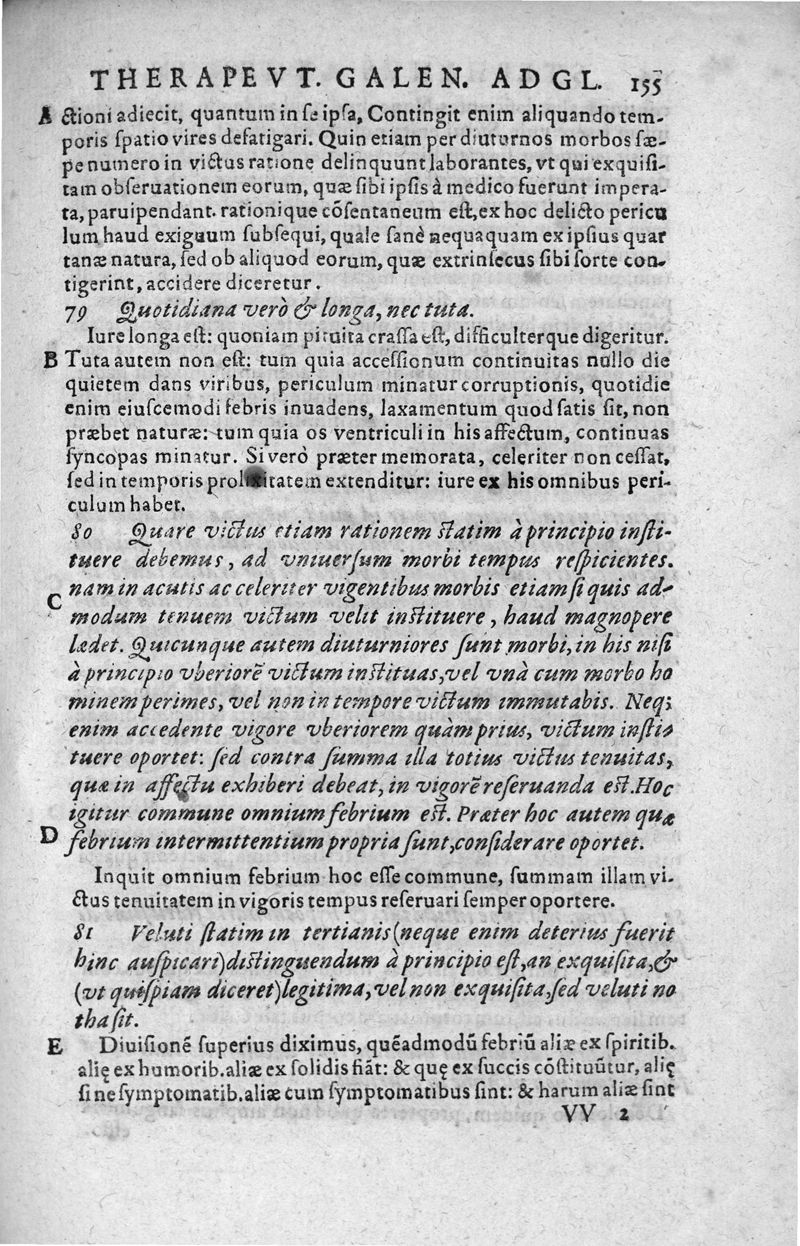 THERAPEVT. GALEN. AD GL. 155
A ctioni adiecit, quantum in se ipsa, Contingit enim aliquando tem-
poris spatio vires defatigari. Quin etiam per diuturnos morbos sæ-
pe numero in victus ratione delinquunt laborantes, vt qui exquisi-
tam obseruationem eorum, quæ sibi ipsis à medico fuerunt impera-
ta, paruipendant. rationique cõsentaneum est, ex hoc delicto pericu
lum haud exiguum subsequi, quale sanè nequaquam ex ipsius quar
tanæ natura, sed ob aliquod eorum, quæ extrinsecus sibi forte con-
tigerint, accidere diceretur.
79 Quotidiana verò & longa, nec tuta.
Iure longa est: quoniam pituita crassa est, difficulterque digeritur.
B Tuta autem non est: tum quia accessionum continuitas nullo die
quietem dans viribus, periculum minatur corruptionis, quotidie
enim eiuscemodi febris inuadens, laxamentum quod satis sit, non
præbet naturæ: tum quia os ventriculi in his affectum, continuas
syncopas minatur. Si verò præter memorata, celeriter non cessat,
sed in temporis prolixitatem extenditur: iure ex his omnibus peri-
culum habet.
80 Quare victus etiam rationem statim à principio insti-
tuere debemus, ad vniuersum morbi tempus respicientes.
nam in acutis ac celeriter vigentibus morbis etiam si quis ad-
C modum tenuem victum velit instituere, haud magnopere
lædet. Quicunque autem diuturniores sunt morbi, in his nisi
à principio vberiorẽ victum instituas, vel vnà cum morbo ho
minem perimes, vel non in tempore victum immutabis. Neq;
enim accedente vigore vberiorem quàm prius, victum insti-
tuere oportet: sed contra summa illa totius victus tenuitas,
quæ in affectu exhiberi debeat, in vigorẽ reseruanda est. Hoc
igitur commune omnium febrium est. Præter hoc autem quæ
D febrium intermittentium propria sunt, considerare oportet.
Inquit omnium febrium hoc esse commune, summam illam vi-
ctus tenuitatem in vigoris tempus reseruari semper oportere.
81 Veluti statim in tertianis (neque enim deterius fuerit
hinc auspicari) distinguendum à principio est, an exquisita, &
(vt quispiam diceret) legitima, vel non exquisita, sed veluti no
tha sit.
E Diuisionẽ superius diximus, quẽadmodũ febriũ aliæ ex spiritib.
alię ex humorib. aliæ ex solidis fiãt: & quę ex succis cõstituũtur, alię
sine symptomatib. aliæ cum symptomatibus sint: & harum aliæ sint
VV 2